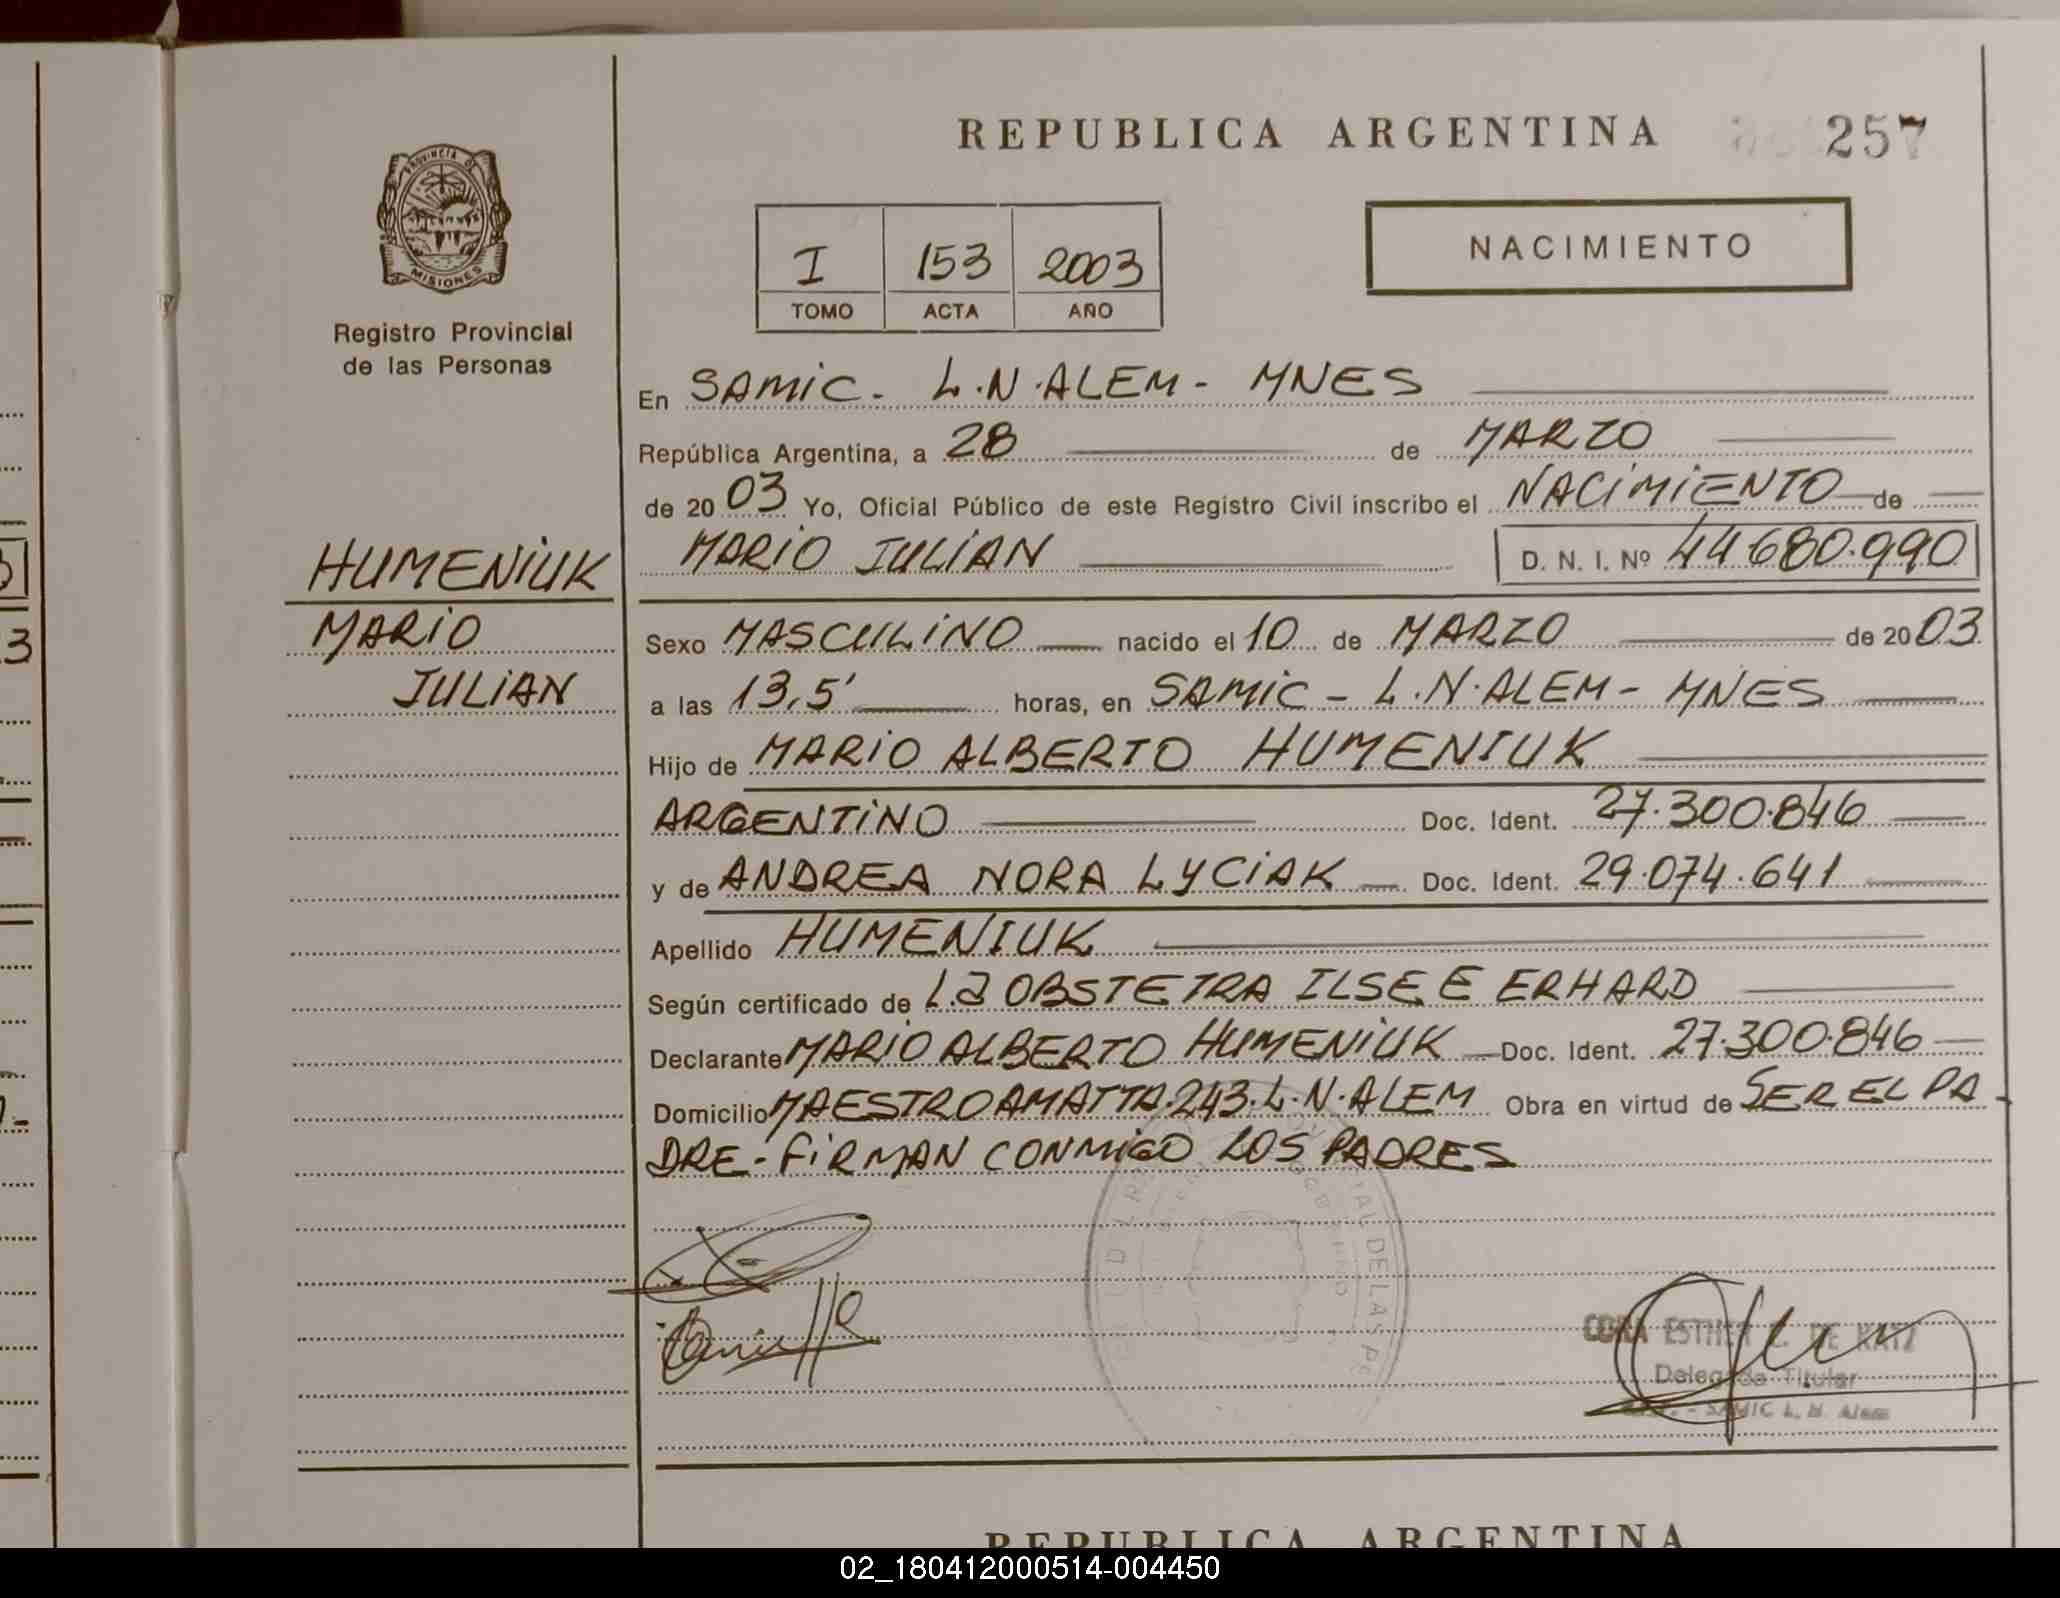 REPUBLICA ARGENTINA 257
PROVINCIA DE
MISIONES
Registro Provincial
de las Personas
I 153 2003
TOMO ACTA AÑO
NACIMIENTO
En SAMIC - L.N.ALEM - MNES
República Argentina, a 28 de MARZO
de 2003 Yo, Oficial Público de este Registro Civil inscribo el NACIMIENTO de
HUMENIUK
MARIO JULIAN D. N. I. Nº 44680.990
MARIO
JULIAN
Sexo MASCULINO nacido el 10 de MARZO de 2003
a las 13,5' horas, en SAMIC - L.N.ALEM - MNES
Hijo de MARIO ALBERTO HUMENIUK
ARGENTINO Doc. Ident. 27.300.846
y de ANDREA NORA LYCIAK Doc. Ident. 29.074.641
Apellido HUMENIUK
Según certificado de La OBSTETRA ILSE E ERHARD
Declarante MARIO ALBERTO HUMENIUK Doc. Ident. 27.300.846
Domicilio MAESTRO AMATTA.243.L.N.ALEM Obra en virtud de SER EL PA-
DRE - FIRMAN CONMIGO LOS PADRES
ESTHER DE KATZ
Delegada Titular
SAMIC L. N. Alem
REPUBLICA ARGENTINA
02_180412000514-004450